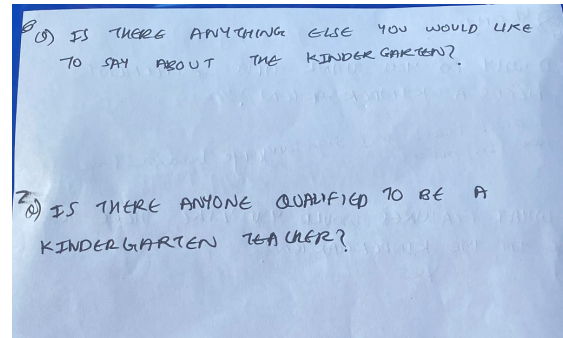 8 Q) IS THERE ANYTHING ELSE YOU WOULD LIKE
TO SAY ABOUT THE KINDERGARTEN?
7 Q) IS THERE ANYONE QUALIFIED TO BE A
KINDERGARTEN TEACHER?